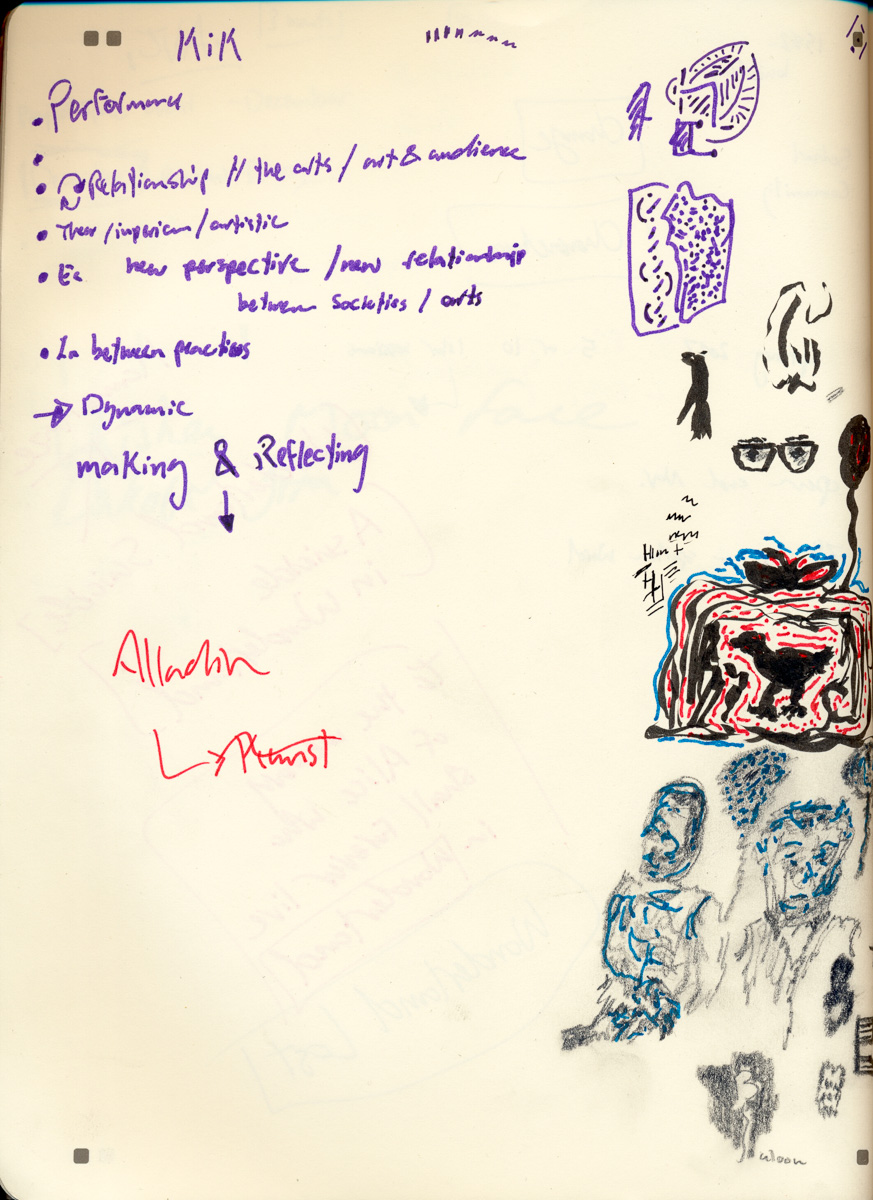 KiK
• Performance
•
• Relationship // the arts / art & audience
• / artistic
• new perspective / new relationship
between societies / arts
• In between practices
→ Dynamic
making & Reflecting
Alladin